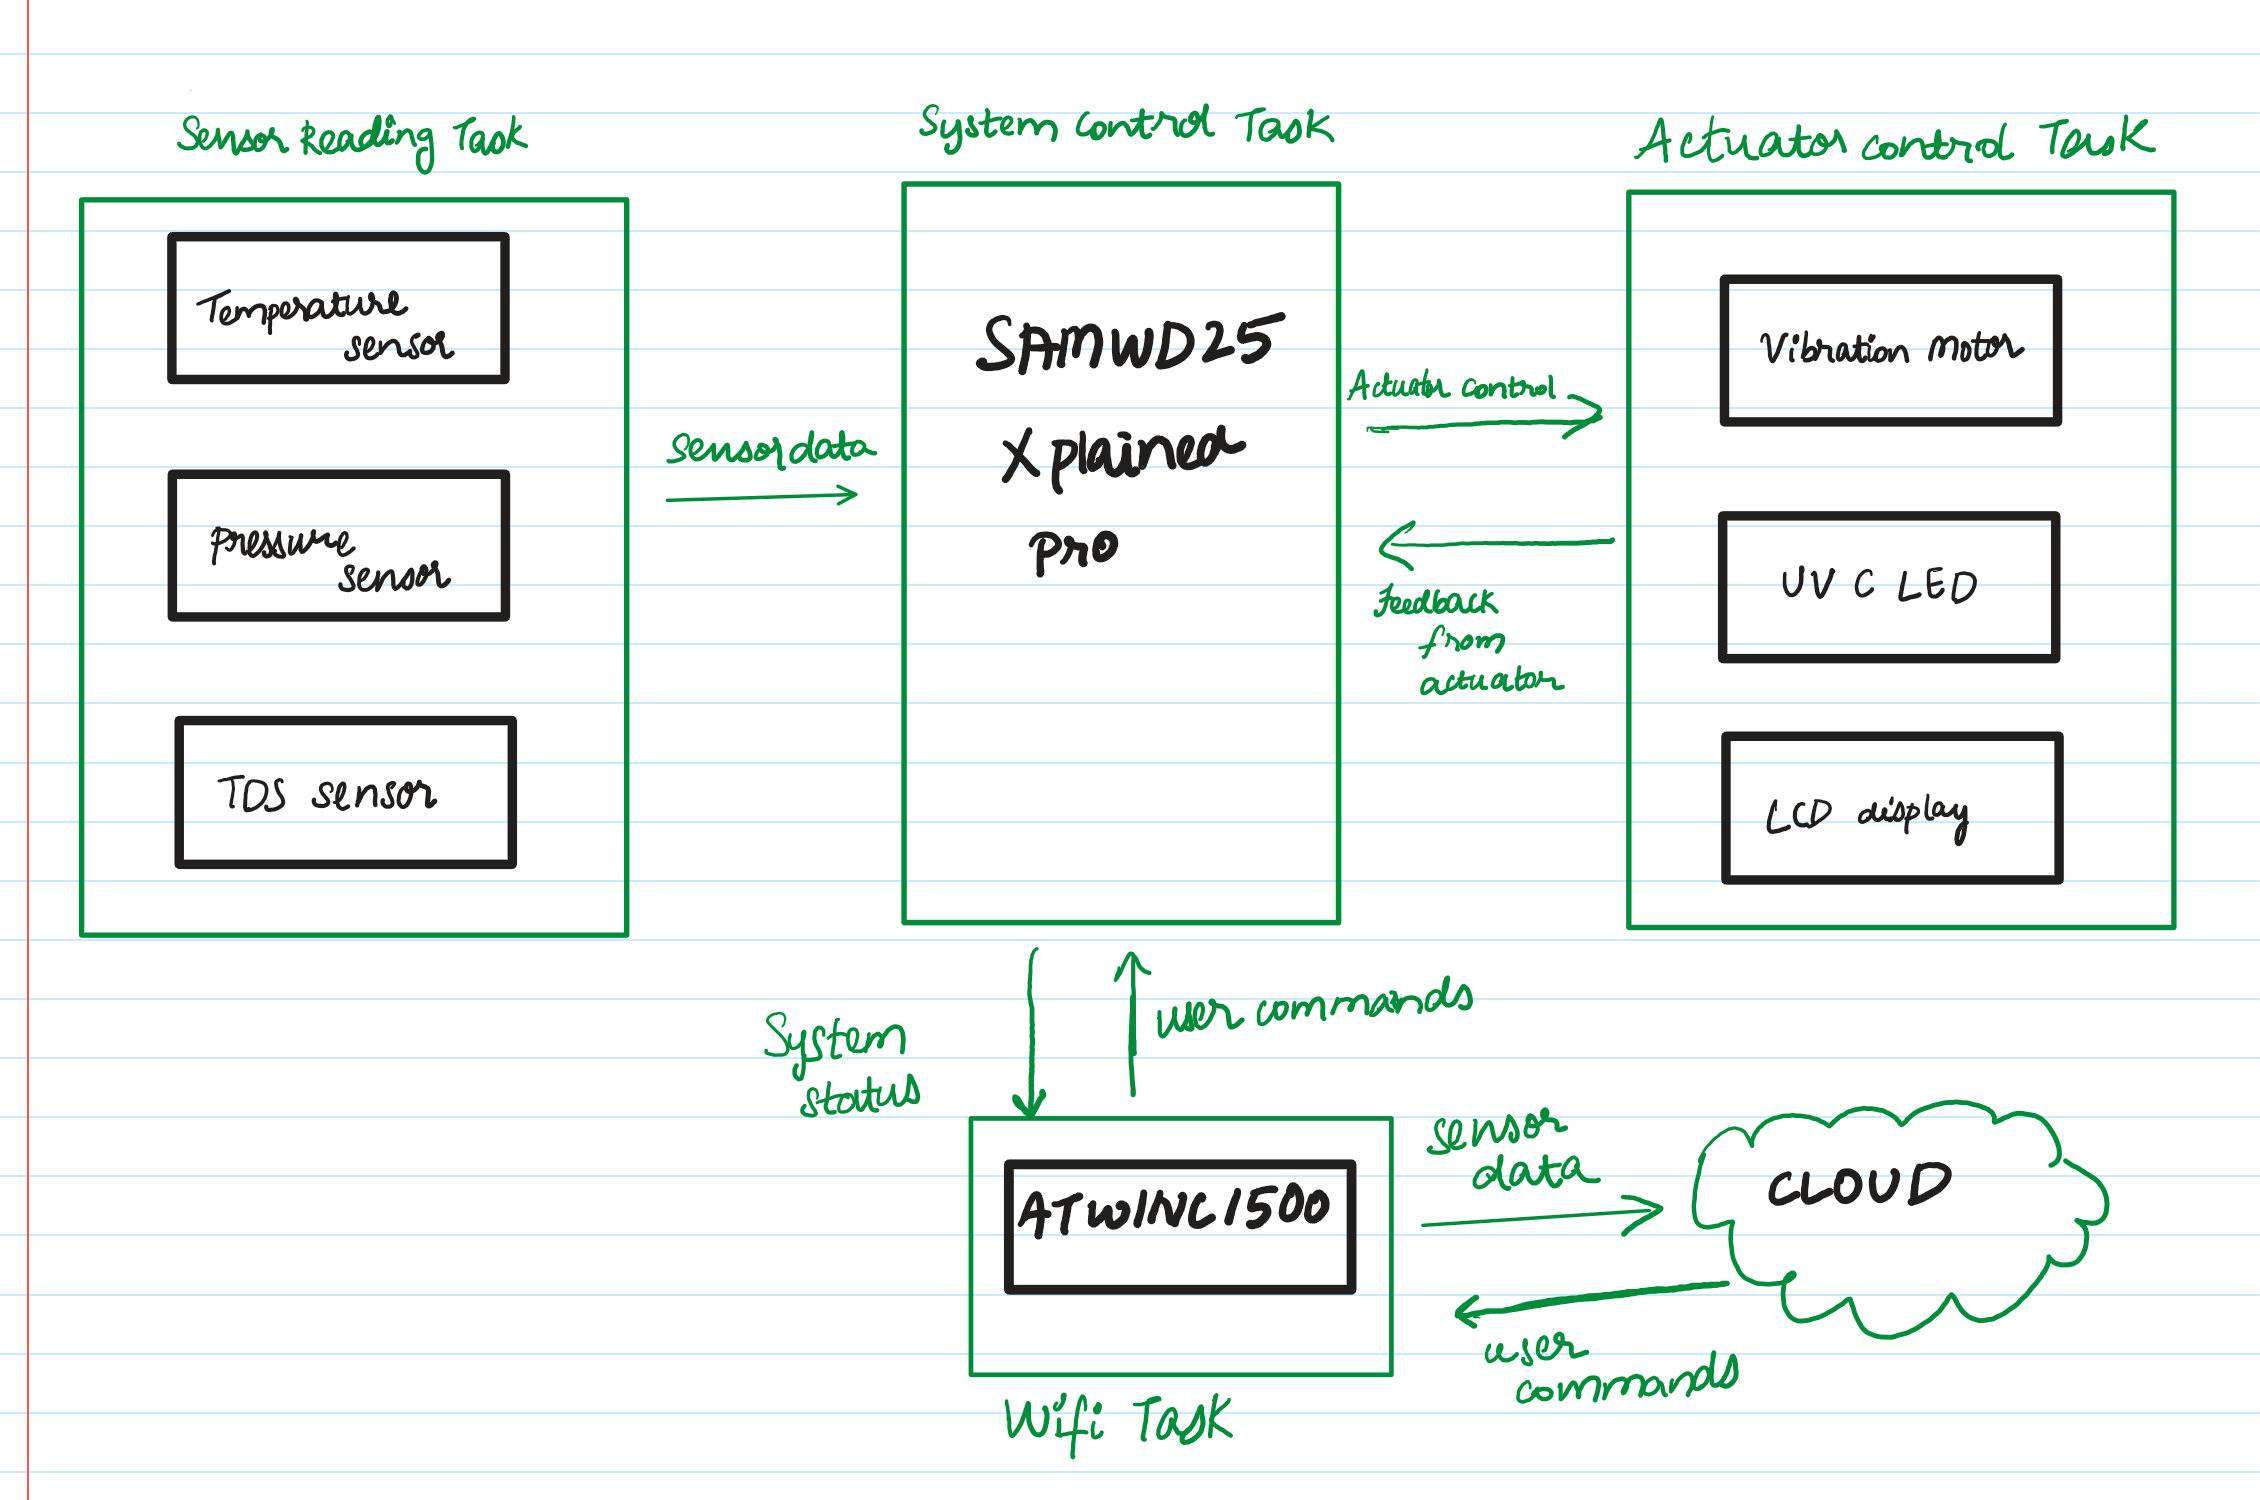 Sensor Reading Task
Temperature
sensor
Pressure
sensor
TDS sensor
Sensor data
System control Task
SAMWD25
Xplained
pro
Actuator control
Feedback
from
actuator
Actuator control Task
Vibration Motor
UV C LED
LCD display
System
status
user commands
ATWINC1500
Wifi Task
sensor
data
user
commands
CLOUD